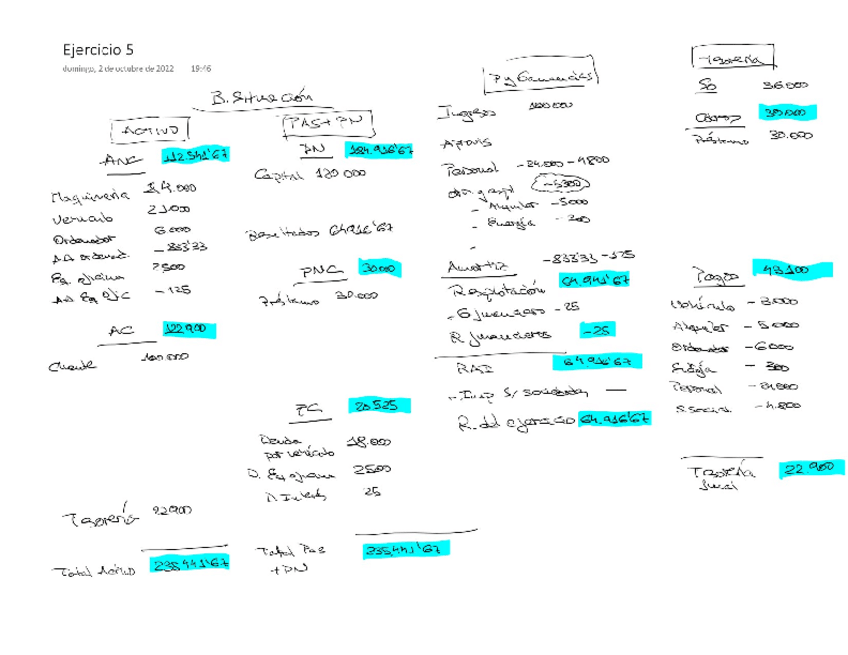 Ejercicio 5
domingo, 2 de octubre de 2022 19:46
B. Situación
ACTIVO
ANC 112.541'67
Maquinaria 84.000
Vehículo 21.000
Ordenador 6000
AA ordenad. -833'33
Eq. oficina 2500
AA Eq Ofic -125
AC 122.900
Cliente 100.000
Tesorería 22900
Total Activo 235.441'67
PAS + PN
PN 184.916'67
Capital 120 000
Resultados 64916'67
PNC 30.000
Préstamo 30.000
PC 20.525
Deuda por vehículo 18.000
D. Eq oficina 2500
D. Interés 25
Total Pas + PN 235441'67
P y Ganancias
Ingresos 100000
Aprovis
Personal -24.000 - 4800
otr. g expl -5300
- Alquiler -5000
- Energía -300
-
Amortiz -833'33 -125
R explotación 64.941'67
- G financiero -25
R financieros -25
RAI 64.916'67
- Imp s/ sociedades —
R. del ejercicio 64.916'67
Tesorería
So 36.000
Cobros 30.000
Préstamo 30.000
Pagos 43.100
Vehículo -3.000
Alquiler -5000
Ordenador -6000
Energía -300
Personal -24.000
S. Social -4.800
Tesorería final 22.900